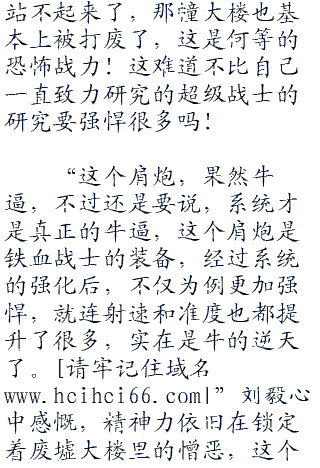 站不起来了，那幢大楼也基
本上被打废了，这是何等的
恐怖战力！这难道不比自己
一直致力研究的超级战士的
研究要强悍很多吗！
“这个肩炮，果然牛
逼，不过还是要说，系统才
是真正的牛逼，这个肩炮是
铁血战士的装备，经过系统
的强化后，不仅为例更加强
悍，就连射速和准度也都提
升了很多，实在是牛的逆天
了。[请牢记住域名
www.hcihci66.com|”刘毅心
中感慨，精神力依旧在锁定
着废墟大楼里的憎恶，这个